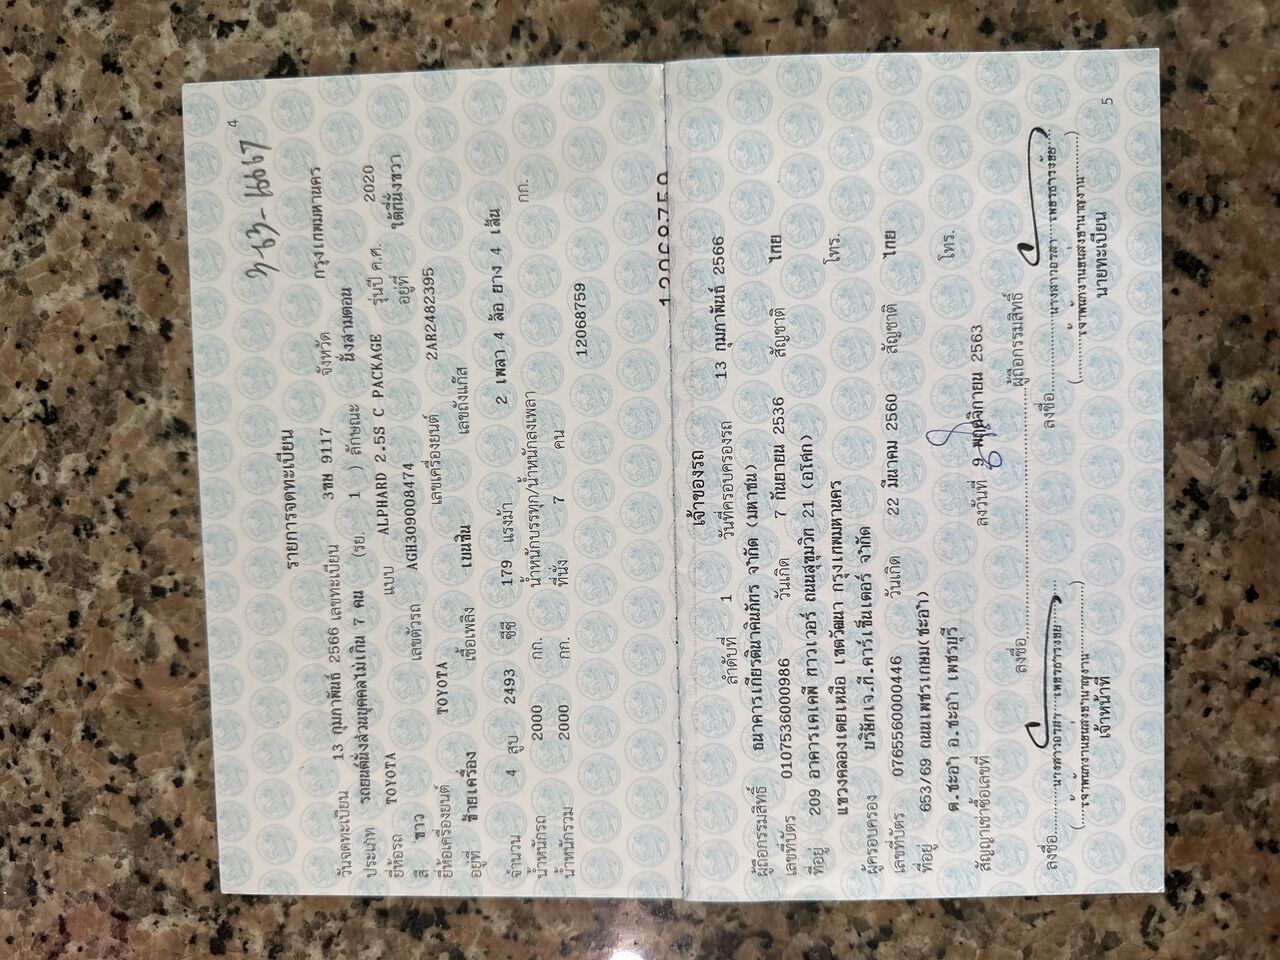 4
รายการจดทะเบียน
วันจดทะเบียน 13 กุมภาพันธ์ 2566 เลขทะเบียน 3ขฆ 9117 จังหวัด กรุงเทพมหานคร
ประเภท รถยนต์นั่งส่วนบุคคลไม่เกิน 7 คน (รย. 1 ) ลักษณะ นั่งสามตอน
ยี่ห้อรถ TOYOTA แบบ ALPHARD 2.5S C PACKAGE รุ่นปี ค.ศ. 2020
สี ขาว เลขตัวรถ AGH309008474 อยู่ที่ ใต้ที่นั่งขวา
ยี่ห้อเครื่องยนต์ TOYOTA เลขเครื่องยนต์ 2AR2482395
อยู่ที่ ซ้ายเครื่อง เชื้อเพลิง เบนซิน เลขถังแก๊ส
จำนวน 4 สูบ 2493 ซีซี 179 แรงม้า 2 เพลา 4 ล้อ ยาง 4 เส้น
น้ำหนักรถ 2000 กก. น้ำหนักบรรทุก/น้ำหนักลงเพลา กก.
น้ำหนักรวม 2000 กก. ที่นั่ง 7 คน
12068759
12068759
เจ้าของรถ
ลำดับที่ 1 วันที่ครอบครองรถ 13 กุมภาพันธ์ 2566
ผู้ถือกรรมสิทธิ์ ธนาคารเกียรตินาคินภัทร จำกัด (มหาชน)
เลขที่บัตร 0107536000986 วันเกิด 7 กันยายน 2536 สัญชาติ ไทย
ที่อยู่ 209 อาคารเคเคพี ทาวเวอร์ ถนนสุขุมวิท 21 (อโศก)
แขวงคลองเตยเหนือ เขตวัฒนา กรุงเทพมหานคร โทร.
ผู้ครอบครอง บริษัทเจ.ที.คาร์เซ็นเตอร์ จำกัด
เลขที่บัตร 0765560000446 วันเกิด 22 มีนาคม 2560 สัญชาติ ไทย
ที่อยู่ 653/69 ถนนเพชรเกษม(ชะอำ)
ต.ชะอำ อ.ชะอำ เพชรบุรี โทร.
สัญญาเช่าซื้อเลขที่ ลงวันที่ 9 พฤศจิกายน 2563
ลงชื่อ ผู้ถือกรรมสิทธิ์
ลงชื่อ ลงชื่อ
(เจ้าพนักงานขนส่งชำนาญงาน) (เจ้าพนักงานขนส่งชำนาญงาน)
เจ้าหน้าที่ นายทะเบียน
5